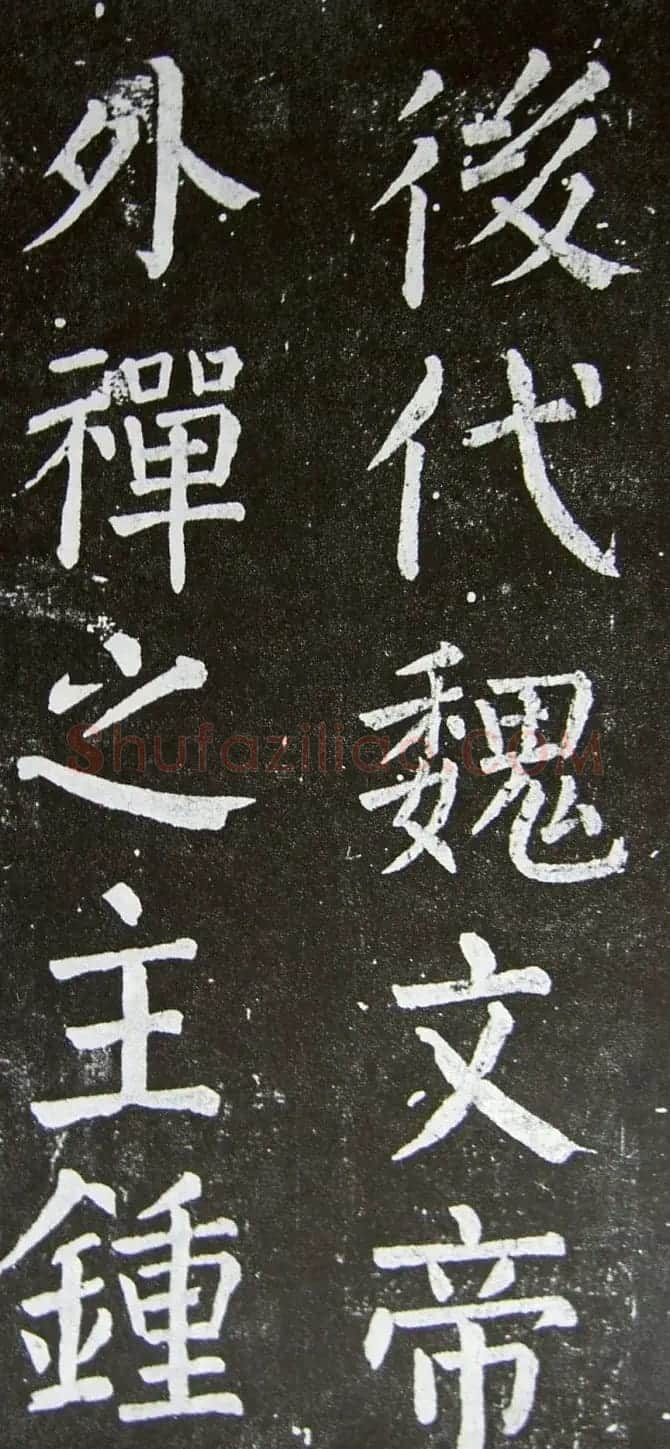 後代魏文帝
外禪之主鍾
Shufaziliao.COM